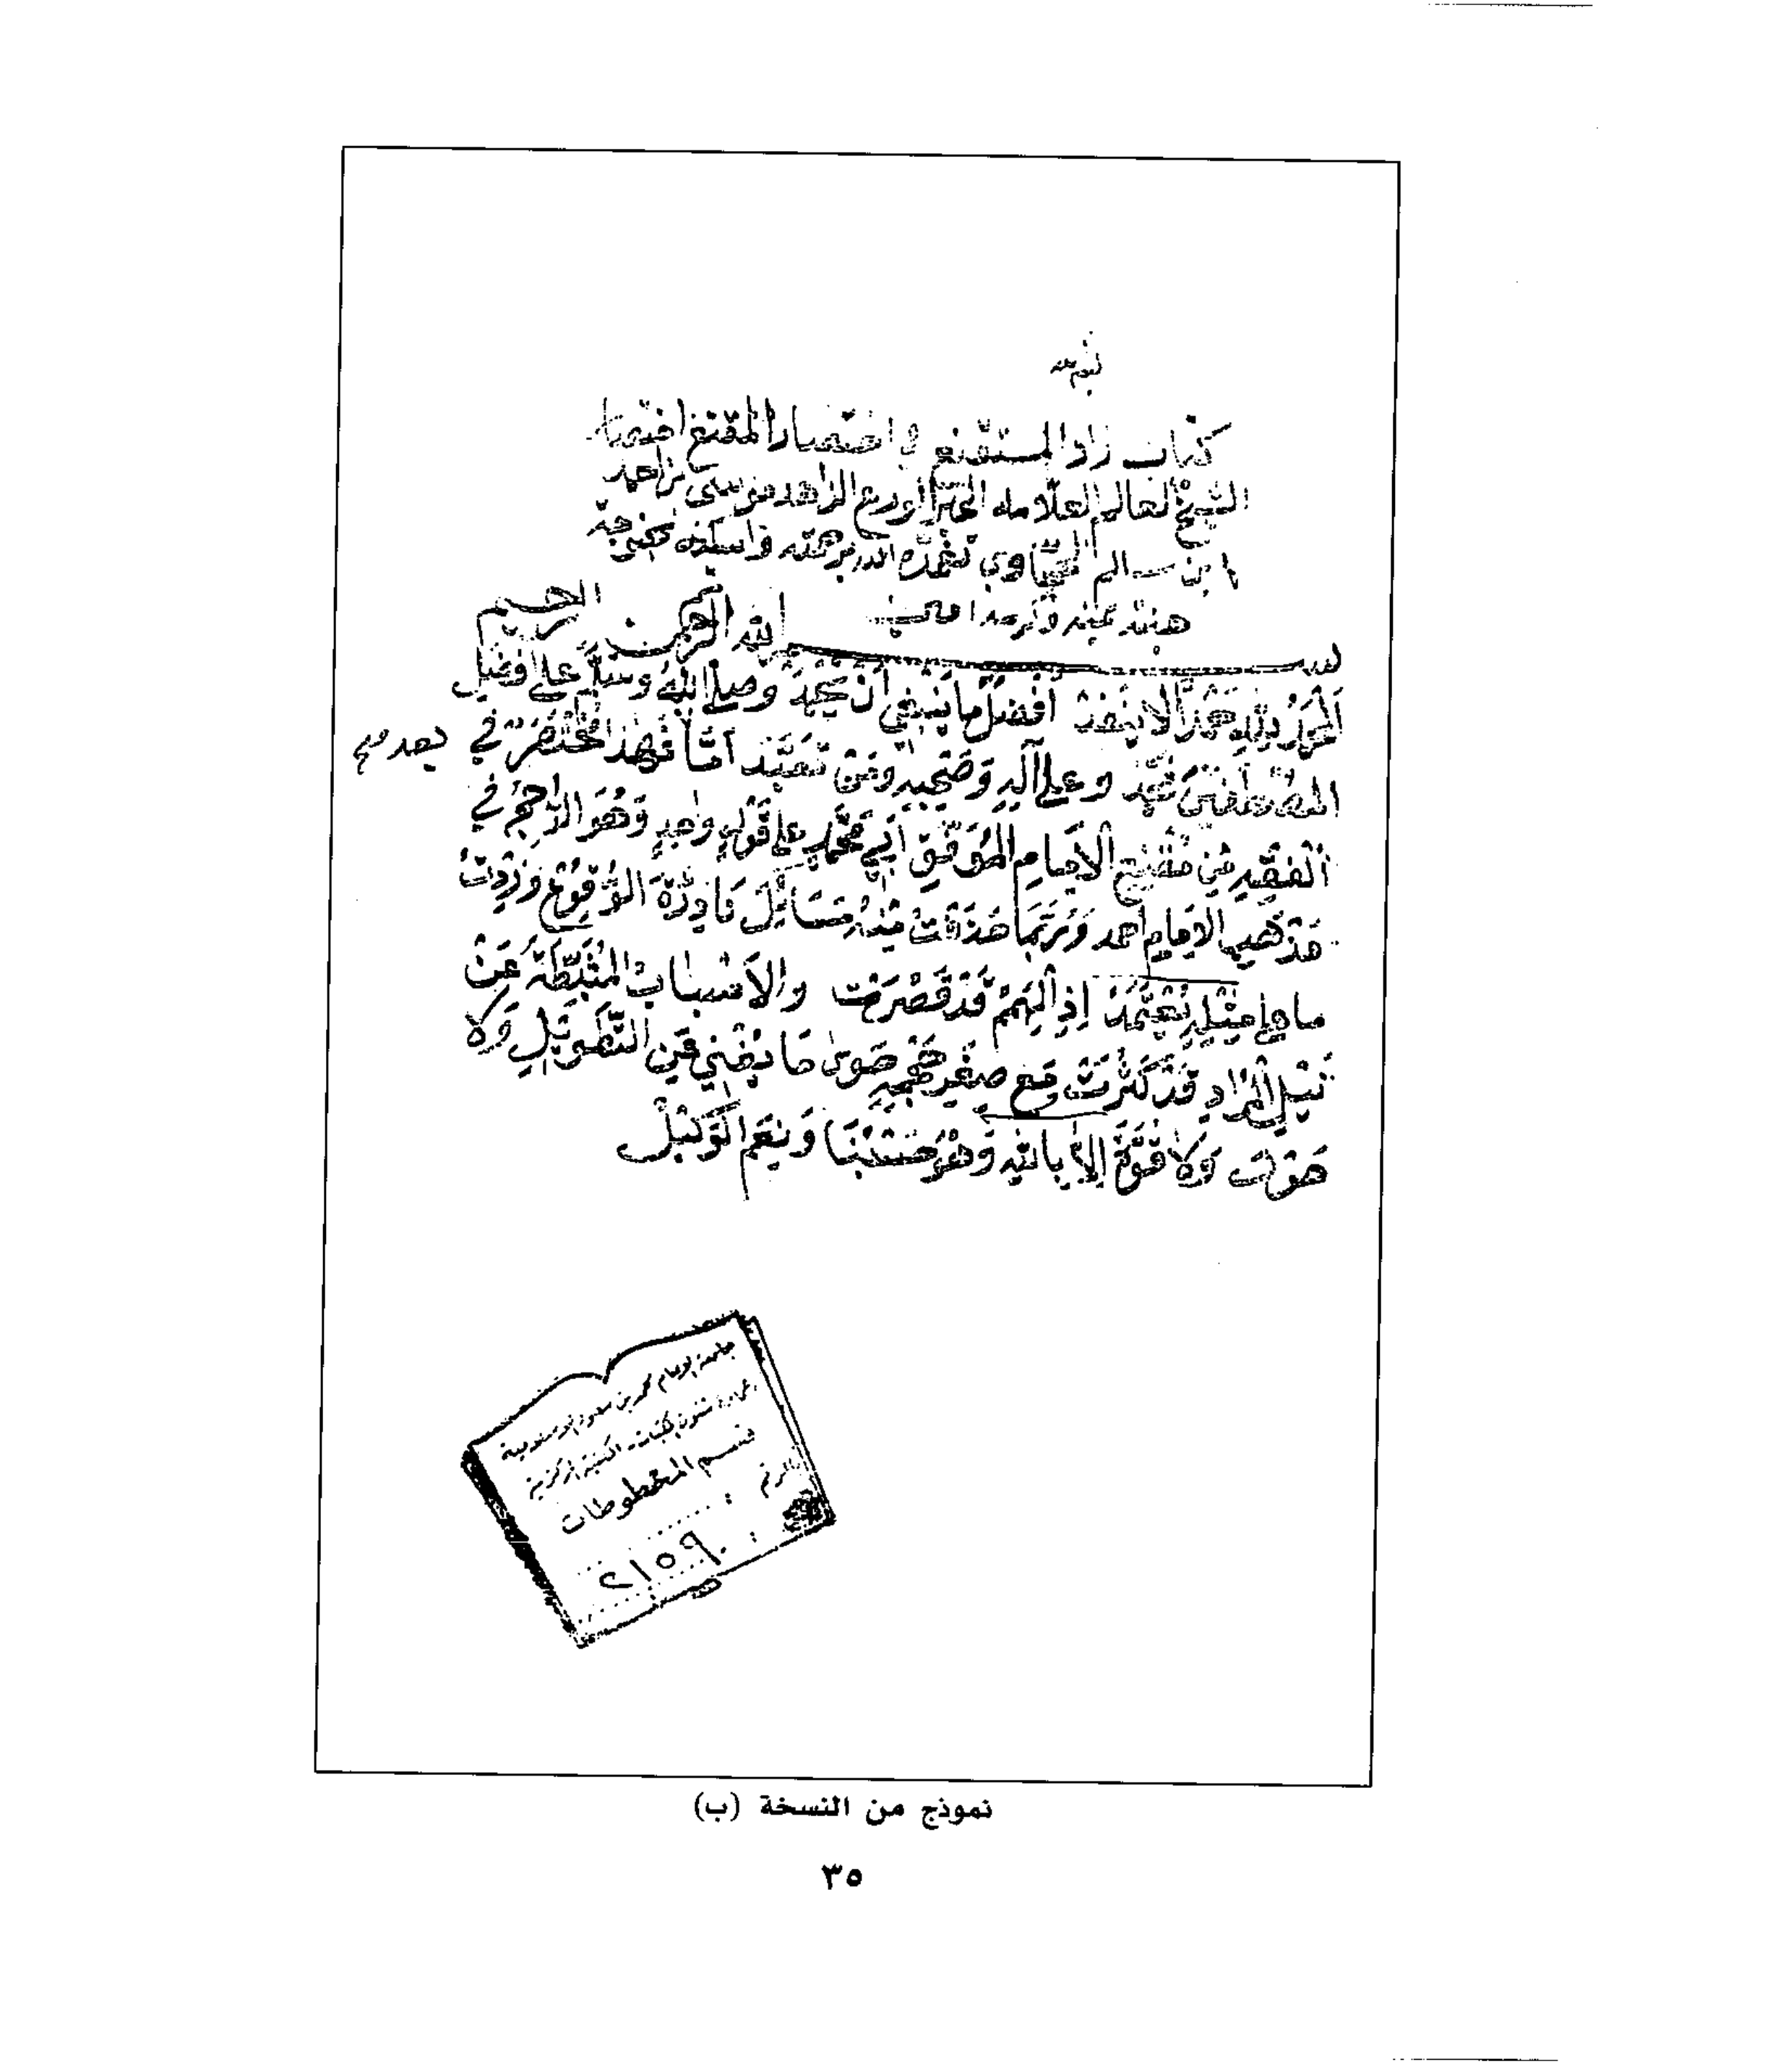 كتاب زاد المستقنع في اختصار المقنع اختصار
الشيخ العالم العلامه الحبر الورع الزاهد موسى بن احمد
ابن سالم الحجاوي تغمده الله برحمته واسكنه بحبوحة
جنته بمنه وكرمه امين
بسم الله الرحمن الرحيم
اَلْحَمْدُ لِلَّهِ حَمْدًا لا يَنفد أفضل ما يَنبَغِي أن يُحمَد وصلى الله وسلم على افضل
المصطفَين محمد وعلى آله وَصَحْبِهِ ومَن تَعَبَّد أمّا فهذا مُخْتَصَرٌ في
بعد صح
الفقه من مُقنِع الإمام المُوَفَّق أبي محمد على قول واحد وَهُوَ الراجح في
مَذْهَب الإمام احمد وَرُبَّمَا حَذَفْتُ مِنْهُ مَسَائِلَ نَادِرَةَ الوُقوع وَزِدتُ
ما على مِثْلِهِ يُعْتَمَدُ إذ الهِمَمُ قَد قَصُرَت والأسبابُ المُثَبِّطَة عَنْ
نَيْلِ المُرَادِ قَدْ كَثُرَت ومَع صِغَرِ حَجْمِهِ حَوى مَا يُغْنِي عَنِ التَّطْوِيلِ وَلا
حَوْلَ وَلا قُوَّةَ إلا بالله وَهُوَ حَسْبُنَا وَنِعْمَ الوَكيل
جامعة الإمام محمد بن سعود الإسلامية
عمادة شئون المكتبات - المكتبة المركزية
قسم المخطوطات
الرقم :
٢١٥٩
نموذج من النسخة (ب)
٣٥